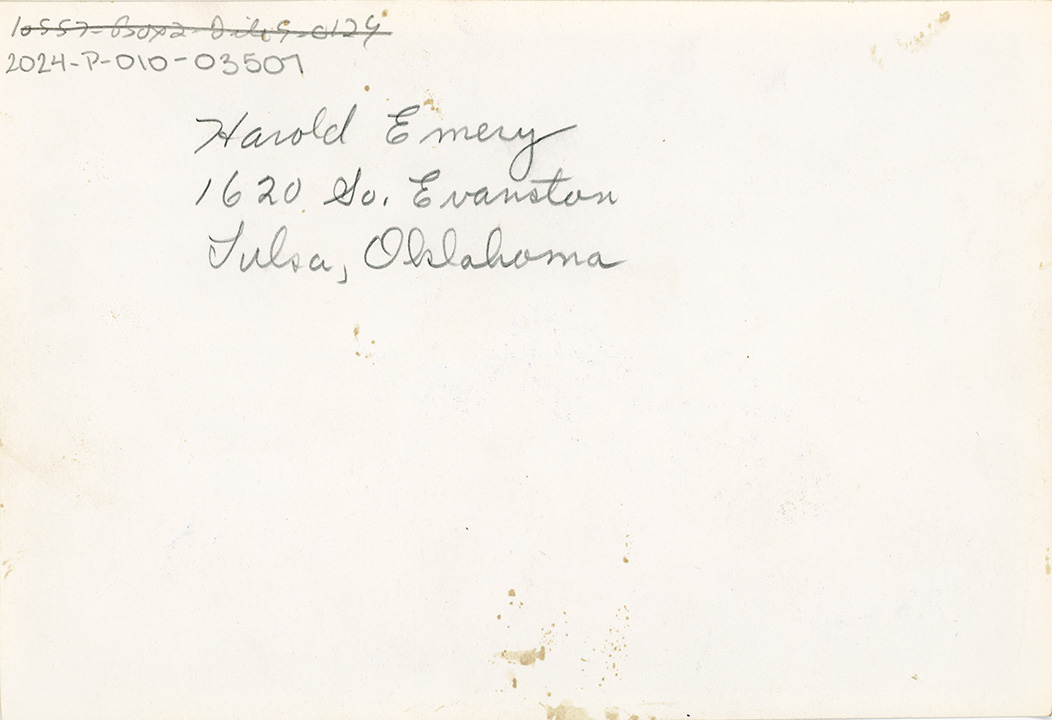 10557-Box2-File9-0129
2024-P-010-03507
Harold Emery
1620 So. Evanston
Tulsa, Oklahoma